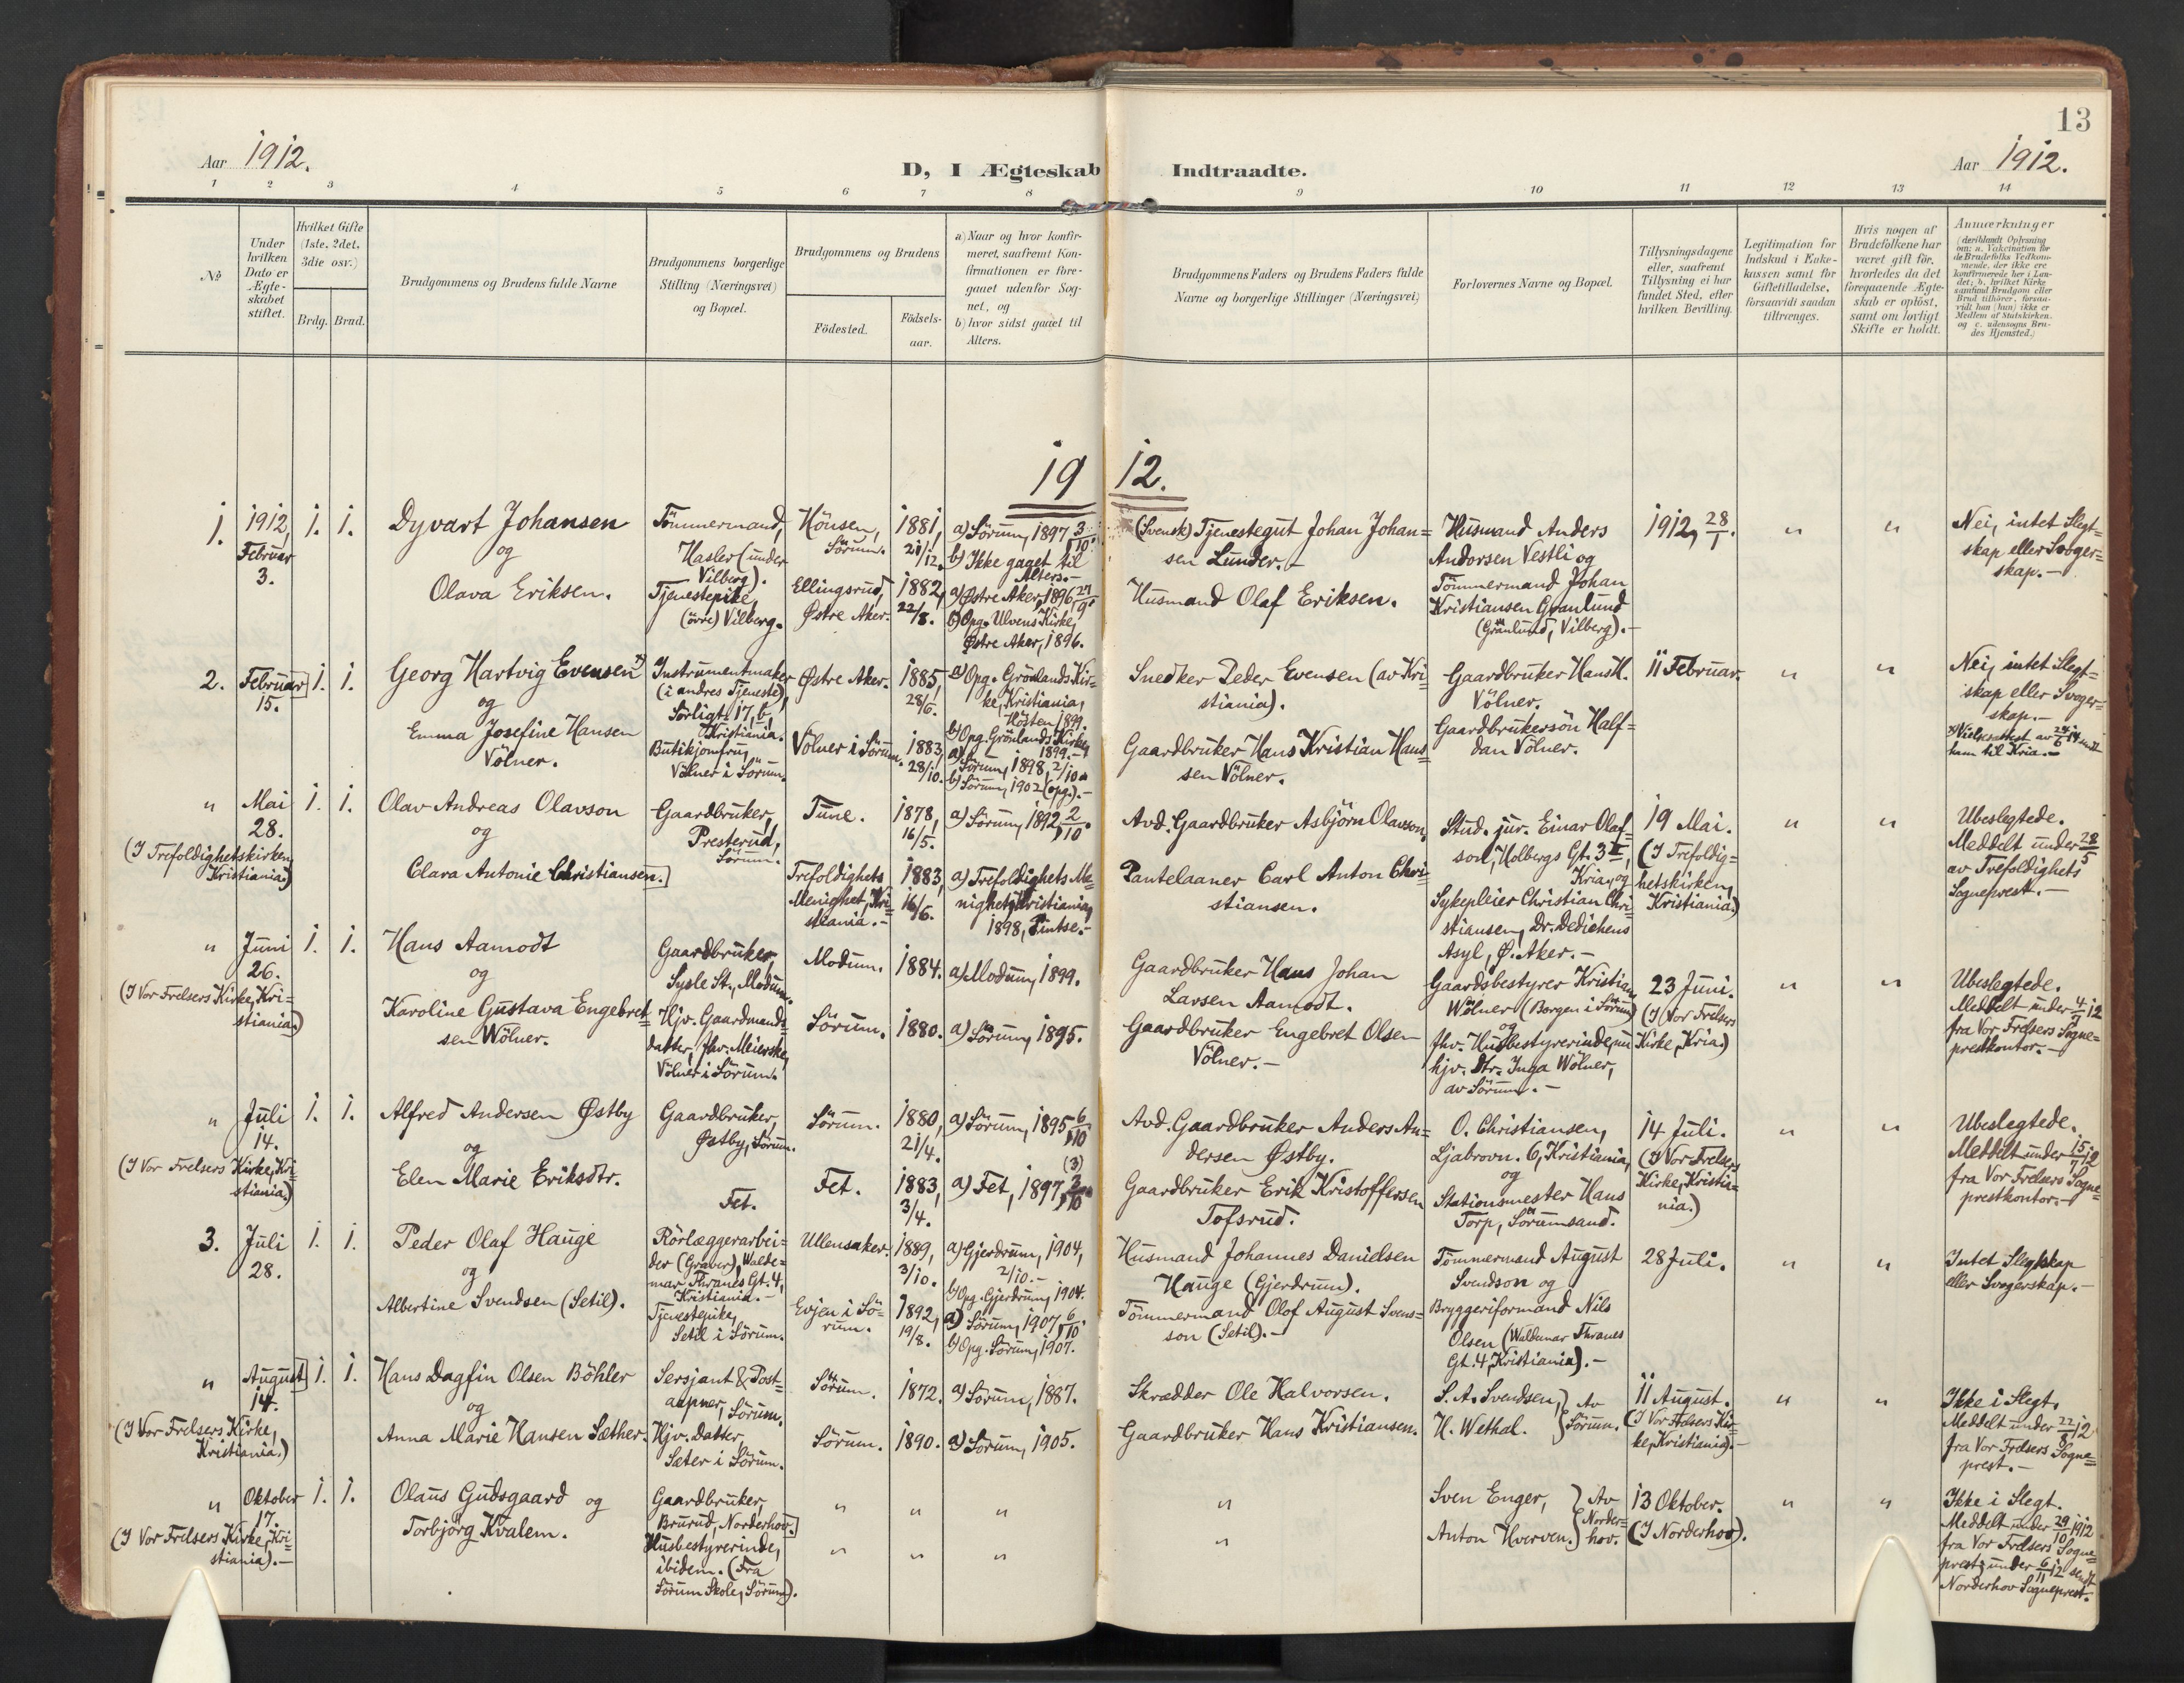 13
Aar 1912.
D, I Ægteskab Indtraadte.
Aar 1912.
1 2 3 4 5 6 7 8 9 10 11 12 13 14
No
Under hvilken Dato er Ægteskabet stiftet.
Hvilket Gifte (1ste, 2det, 3die osv.)
Brdg. Brud.
Brudgommens og Brudens fulde Navne
Brudgommens borgerlige Stilling (Næringsvei) og Bopæl.
Brudgommens og Brudens
Födested.
Födsels-aar.
a) Naar og hvor konfir-
meret, saafremt Kon-
firmationen er fore-
gaaet udenfor Sog-
net, og
b) hvor sidst gaaet til
Alters.
Brudgommens Faders og Brudens Faders fulde
Navne og borgerlige Stillinger (Næringsvei)
Forlovernes Navne og Bopæl.
Tillysningsdagene
eller, saafremt
Tillysning ei har
fundet Sted, efter
hvilken Bevilling.
Legitimation for
Indskud i Enke-
kassen samt for
Giftetilladelse,
forsaavidt saadan
tiltrænges.
Hvis nogen af
Brudefolkene har
været gift för,
hvorledes da det
foregaaende Ægte-
skab er oplöst,
samt om lovligt
Skifte er holdt.
Anmærkninger
(deriblandt Oplysning
om: a. Vakcination for
de Brudefolks Vedkom-
mende, der ikke ere
konfirmerede her i Lan-
det; b. hvilket Kirke-
samfund Brudgom eller
Brud tilhörer, forsaa-
vidt han (hun) ikke er
Medlem af Statskirken,
og c. udensogns Bru-
des Hjemsted.)
1912.
1.
1912,
Februar
3.
1. 1.
Dyvart Johansen
og
Olava Eriksen.
Tömmermand,
Hasler (under
Vilberg).
Tjenestepike,
(övre) Vilberg.
Hönsen,
Sörum.
Ellingsrud,
Østre Aker.
1881,
21/12.
1882,
22/8.
a) Sörum, 1897, 3/10.
b) Ikke gaaet til
Alters.-
a) Østre Aker, 1896, 27/9.
b) Opg. Ulvens Kirke,
Østre Aker, 1896.
(Svensk) Tjenestegut Johan Johan=
sen Lunder.-
Husmand Olaf Eriksen.
Husmand Anders
Andorsen Vestli og
Tömmermand Johan
Kristiansen Granlund
(Granlund, Vilberg).-
1912, 28/1.
" "
Nei, intet Slegt=
skap eller Svoger=
skap.-
2.
Februar
15.
1. 1.
Georg Hartvig Evensen x)
og
Emma Josefine Hansen
Völner.
Instrumentmaker
(i andres Tjeneste),
Sörligt. 17, b,
Kristiania.
Butikjomfru,
Völner i Sörum.
Østre Aker.
Völner i Sörum.
1885,
28/6.
1883,
28/10.
a) Opg. Grönlands Kir=
ke, Kristiania,
Hösten 1899.
b) Opg. Grönlands Kirke,
1899.-
a) Sörum, 1898, 2/10.
b) Sörum, 1902 (opg.).-
Snedker Peder Evensen (av Kri=
stiania).
Gaardbruker Hans Kristian Han=
sen Völner.
Gaardbruker Hans K.
Völner.
Gaardbrukersön Half=
dan Völner.
11 Februar.
" "
Nei, intet Slegt=
skap eller Svoger=
skap.-
x) Vielsesattest av 24/6 14 sendt
ham til Kria.-
"
Mai
28.
(I Trefoldighetskirken,
Kristiania.)
1. 1.
Olav Andreas Olavson
og
Clara Antonie Christiansen.
Gaardbruker,
Presterud,
Sörum.
Tune.
Trefoldighets
Menighet, Kri=
stiania.-
1878,
16/5.
1883,
16/6.
a) Sörum, 1892, 2/10.
a) Trefoldighets Me=
nighet, Kristiania,
1898, Pintse.-
Avd. Gaardbruker Asbjörn Olavson.
Pantelaaner Carl Anton Chri=
stiansen.
Stud. jur. Einar Olaf=
son, Holbergs Gt. 3 II,
Kria, og
Sykepleier Christian Chri=
stiansen, Dr. Dedichens
Asyl, Ø. Aker.-
19 Mai.
(I Trefoldig=
hetskirken,
Kristiania.)
" "
Ubeslegtede.
Meddelt under 28/5
av Trefoldighets
Sogneprest.-
"
Juni
26.
(I Vor Frelsers Kirke, Kri=
stiania.)
1. 1.
Hans Aamodt
og
Karoline Gustava Engebret=
sen Wölner.
Gaardbruker,
Sysle St., Modum.
Hjv. Gaardmands=
datter, fhv. Meierske,
Völner i Sörum.
Modum.
Sörum.
1884.
1880.
a) Modum, 1899.
a) Sörum, 1895.
Gaardbruker Hans Johan
Larsen Aamodt.
Gaardbruker Engebret Olsen
Völner.-
Gaardsbestyrer Kristian
Wölner (Borgen i Sörum)
og
fhv. Husbestyrerinde, nu
hjv. Dtr. Inga Wölner,
av Sörum.-
23 Juni.
(I Vor Frelsers
Kirke, Kria.)
" "
Ubeslegtede.
Meddelt under 4/7 12
fra Vor Frelsers Sogne=
prestkontor.-
"
Juli
14.
(I Vor Frelsers Kirke, Kri=
stiania.)
1. 1.
Alfred Andersen Østby
og
Elen Marie Eriksdtr.
Gaardbruker,
Østby, Sörum.
Fet.
Sörum.
Fet.
1880,
21/4.
1883,
3/4.
a) Sörum, 1895, 6/10
(3)
a) Fet, 1897, 3/10
Avd. Gaardbruker Anders An=
dersen Østby.
Gaardbruker Erik Kristoffersen
Tofsrud.
O. Christiansen,
Ljabrovn. 6, Kristiania,
og
Stationsmester Hans
Torp, Sörumsand.
14 Juli.
(I Vor Frelsers
Kirke, Kristia=
nia.)
" "
Ubeslegtede.
Meddelt under 15/7 12
fra Vor Frelsers Sogne=
prestkontor.-
3.
Juli
28.
1. 1.
Peder Olaf Hauge
og
Albertine Svendsen (Setil).
Rörlæggerarbei=
der (Graver), Walde=
mar Thranes Gt. 4,
Kristiania.-
Tjenestepike,
Setil i Sörum.
Ullensaker.
Evjen i Sö=
rum.
1889,
3/10.
1892,
19/8.
a) Gjerdrum, 1904,
2/10.-
b) Opg. Gjerdrum, 1904.
a) Sörum, 1907, 6/10.
b) Opg. Sörum, 1907.
Husmand Johannes Danielsen
Hauge (Gjerdrum).
Tömmermand Olof August Svens=
son (Setil).-
Tömmermand August
Svendson og
Bryggeriformand Nils
Olsen (Waldemar Thranes
Gt. 4, Kristiania).-
28 Juli.
" "
Intet Slegtskap
eller Svogerskap.-
"
August
14.
(I Vor Frelsers Kirke,
Kristiania.)
1. 1.
Hans Dagfin Olsen Böhler
og
Anna Marie Hansen Sæther.
Sersjant & Post=
aapner, Sörum.
Hjv. Datter,
Sæter i Sörum.
Sörum.
Sörum.
1872.
1890.
a) Sörum, 1887.
a) Sörum, 1905.
Skrædder Ole Halvorsen.
Gaardbruker Hans Kristiansen.
S. A. Svendsen,
H. Wethal.
Av
Sörum.
11 August.
(I Vor Frelsers Kir=
ke, Kristiania).-
" "
Ikke i Slegt.
Meddelt under 22/8 12
fra Vor Frelsers Sogne=
prest.-
"
Oktober
17.
(I Vor Frelsers Kirke, Kri=
stiania).-
1. 1.
Olaus Gudsgaard og
Torbjörg Kvalem.
Gaardbruker,
Brurud, Norderhov.
Husbestyrerinde,
ibidem. (Fra
Sörum Skole, Sörum).
" " " "
" " " "
Sven Enger,
Anton Hverven.
Av
Norder=
hov.
13 Oktober.
(I Norderhov).
" "
Ikke i Slegt.
Meddelt under 29/10 1912
fra Vor Frelsers Sogne=
prest; under 6/11 12 sendt
Norderhov Sogneprest.